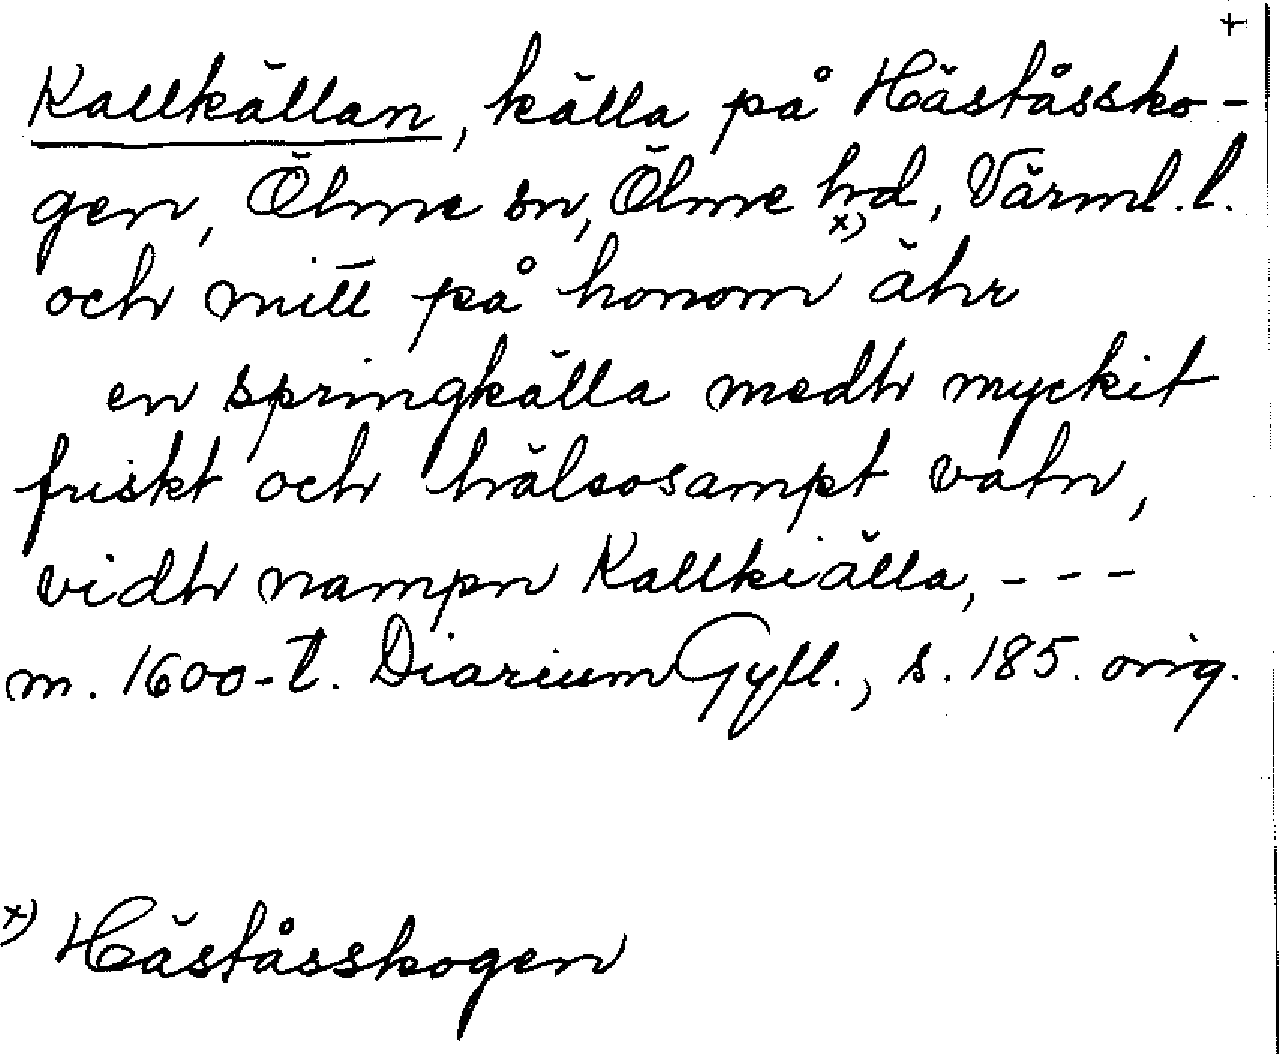 +
Kallkällan, källa på Häståssko-
gen, Ölme sn, Ölme hd, Värml. l.
och mitt på honom x) ähr
en springkälla medh myckit
friskt och hälsosampt vatn,
vidh nampn Kallkiälla, - - -
m. 1600-t. Diarium Gyll., s. 185. orig.
x) Häståsskogen